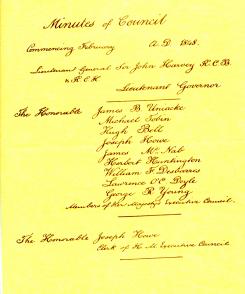 Minutes of Council
Commencing February A.D. 1848.
Lieutenant General Sir John Harvey K.C.B
& K.C.H.
Lieutenant Governor
The Honorable James B. Uniacke
Michael Tobin
Hugh Bell
Joseph Howe
James McNab
Herbert Huntington
William F. Desbarres
Lawrence O'C Doyle
George R Young
Members of Her Majesty's Executive Council.
The Honorable Joseph Howe
Clerk of H. M. Executive Council